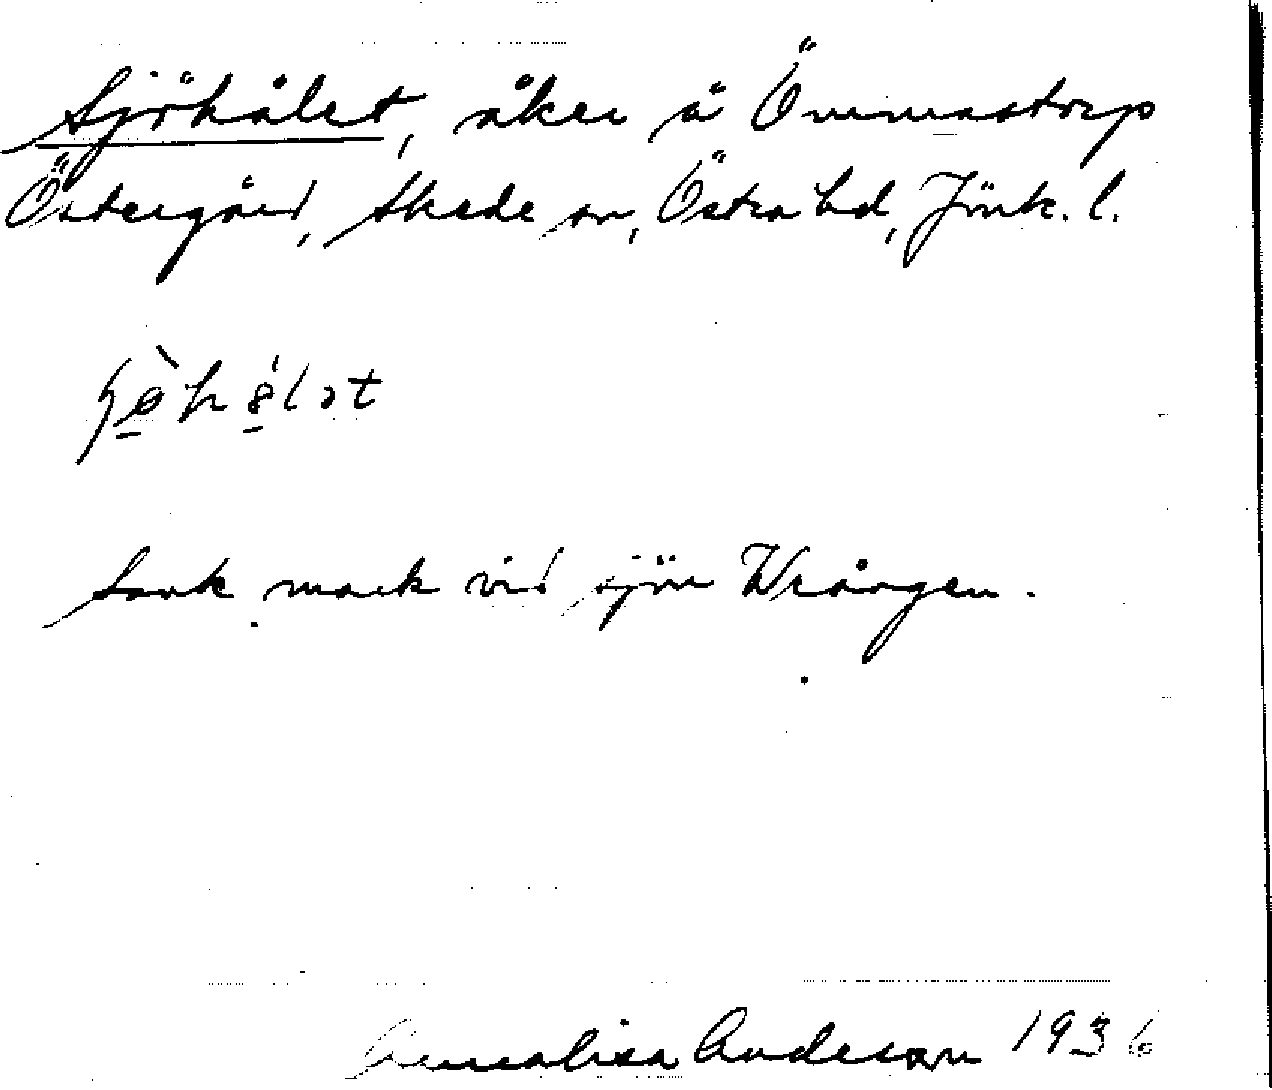 Sjöhålet, åker å Ömmastorp
Östergård, Skede sn, Östra hd, Jönk. l.
Sank mark vid sjön Wrången.
Annalisa Anderson 1936